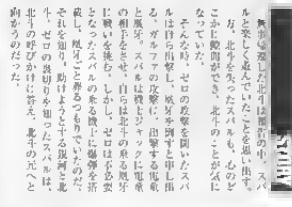 無事帰還した北斗は報告の中、スバ
ルと楽しく遊んでいたことを思い出す。
一方、北斗を失ったスバルも、心のど
こかに隙間ができ、北斗のことが気に
なっていた。
そんな時、ゼロの攻撃を聞いたスバ
ルは自ら出撃し、凰牙を倒すと申し出
る。ガルファの攻撃に、出撃する電童
と凰牙。スバルは機士ジャックに電童
の相手をさせ、自らは北斗の乗る凰牙
に戦いを挑む。しかし、ゼロは不必要
となったスバルの乗る機士に爆弾を搭
載し、凰牙ごと葬るつもりでいたのだ。
それを知り、助けようとする銀河と北
斗。ゼロの裏切りを知ったスバルは、
北斗の呼びかけに答え、北斗の元へと
向かうのだった。
STORY